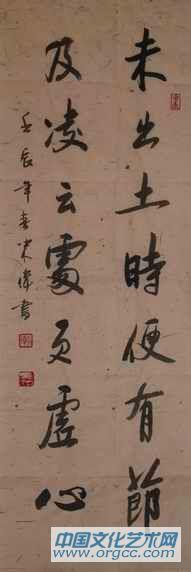 未出土時便有節
及凌云處更虛心
壬辰年春宋偉書
中国文化艺术网
www.orgcc.com